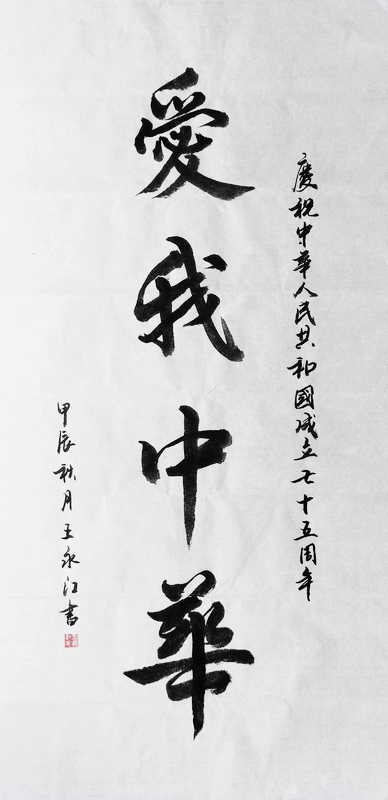 慶祝中華人民共和國成立七十五周年
愛我中華
甲辰秋月王永江書